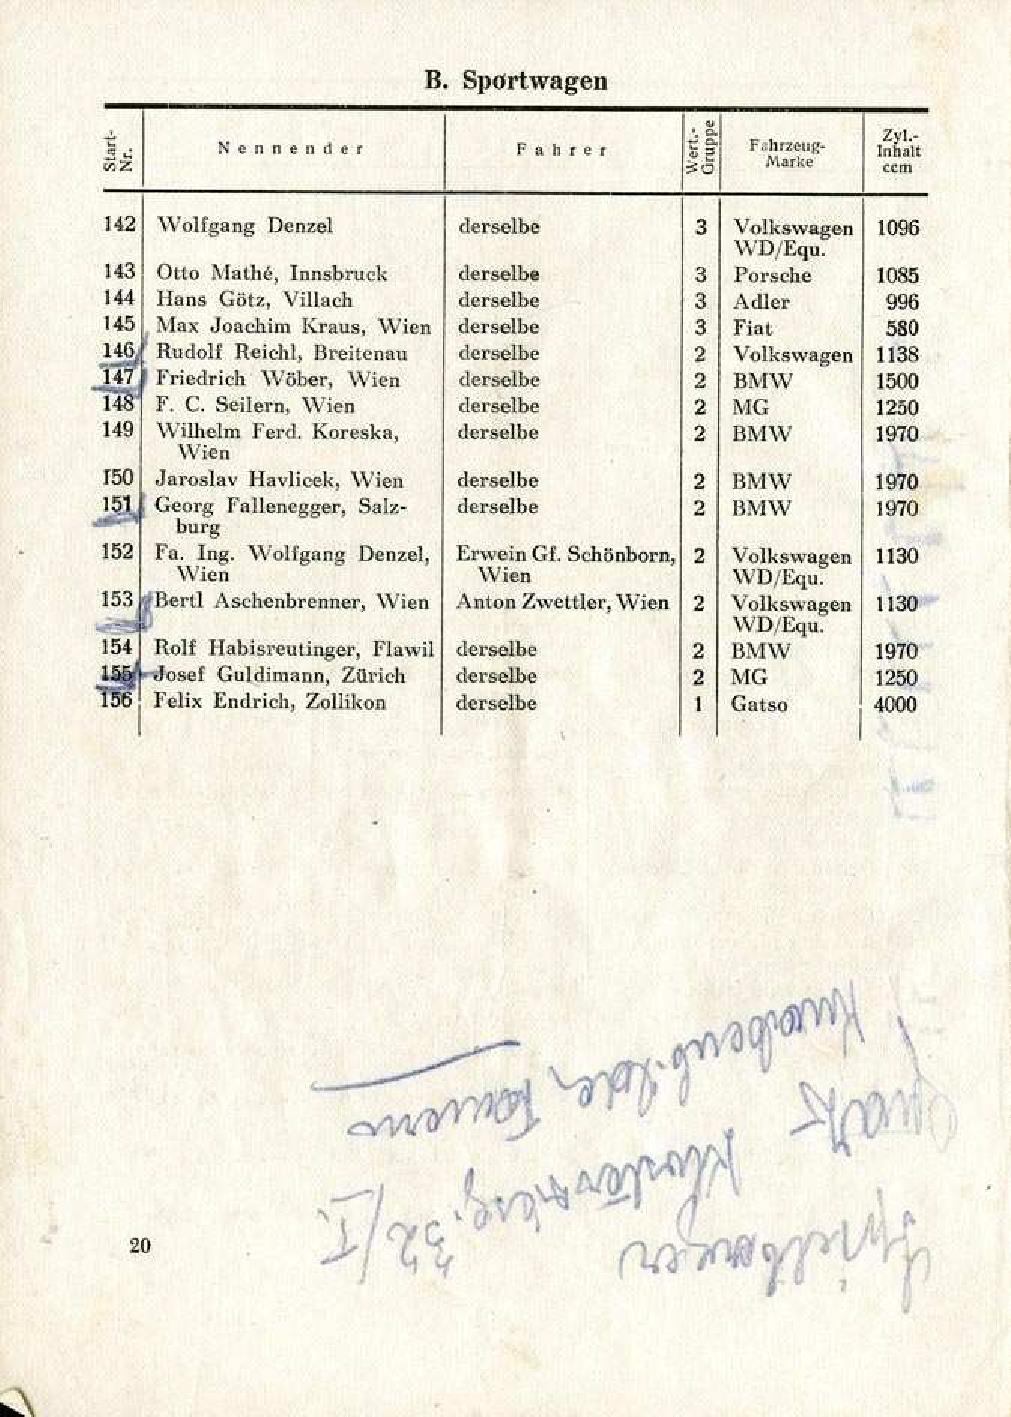 B. Sportwagen
Start-Nr. Nennender Fahrer Wert.-Gruppe Fahrzeug-Marke Zyl.-Inhalt ccm
142 Wolfgang Denzel derselbe 3 Volkswagen 1096
WD/Equ.
143 Otto Mathé, Innsbruck derselbe 3 Porsche 1085
144 Hans Götz, Villach derselbe 3 Adler 996
145 Max Joachim Kraus, Wien derselbe 3 Fiat 580
146 Rudolf Reichl, Breitenau derselbe 2 Volkswagen 1138
147 Friedrich Wöber, Wien derselbe 2 BMW 1500
148 F. C. Seilern, Wien derselbe 2 MG 1250
149 Wilhelm Ferd. Koreska, derselbe 2 BMW 1970
Wien
150 Jaroslav Havlicek, Wien derselbe 2 BMW 1970
151 Georg Fallenegger, Salz- derselbe 2 BMW 1970
burg
152 Fa. Ing. Wolfgang Denzel, Erwein Gf. Schönborn, 2 Volkswagen 1130
Wien Wien WD/Equ.
153 Bertl Aschenbrenner, Wien Anton Zwettler, Wien 2 Volkswagen 1130
WD/Equ.
154 Rolf Habisreutinger, Flawil derselbe 2 BMW 1970
155 Josef Guldimann, Zürich derselbe 2 MG 1250
156 Felix Endrich, Zollikon derselbe 1 Gatso 4000
32/I.
20